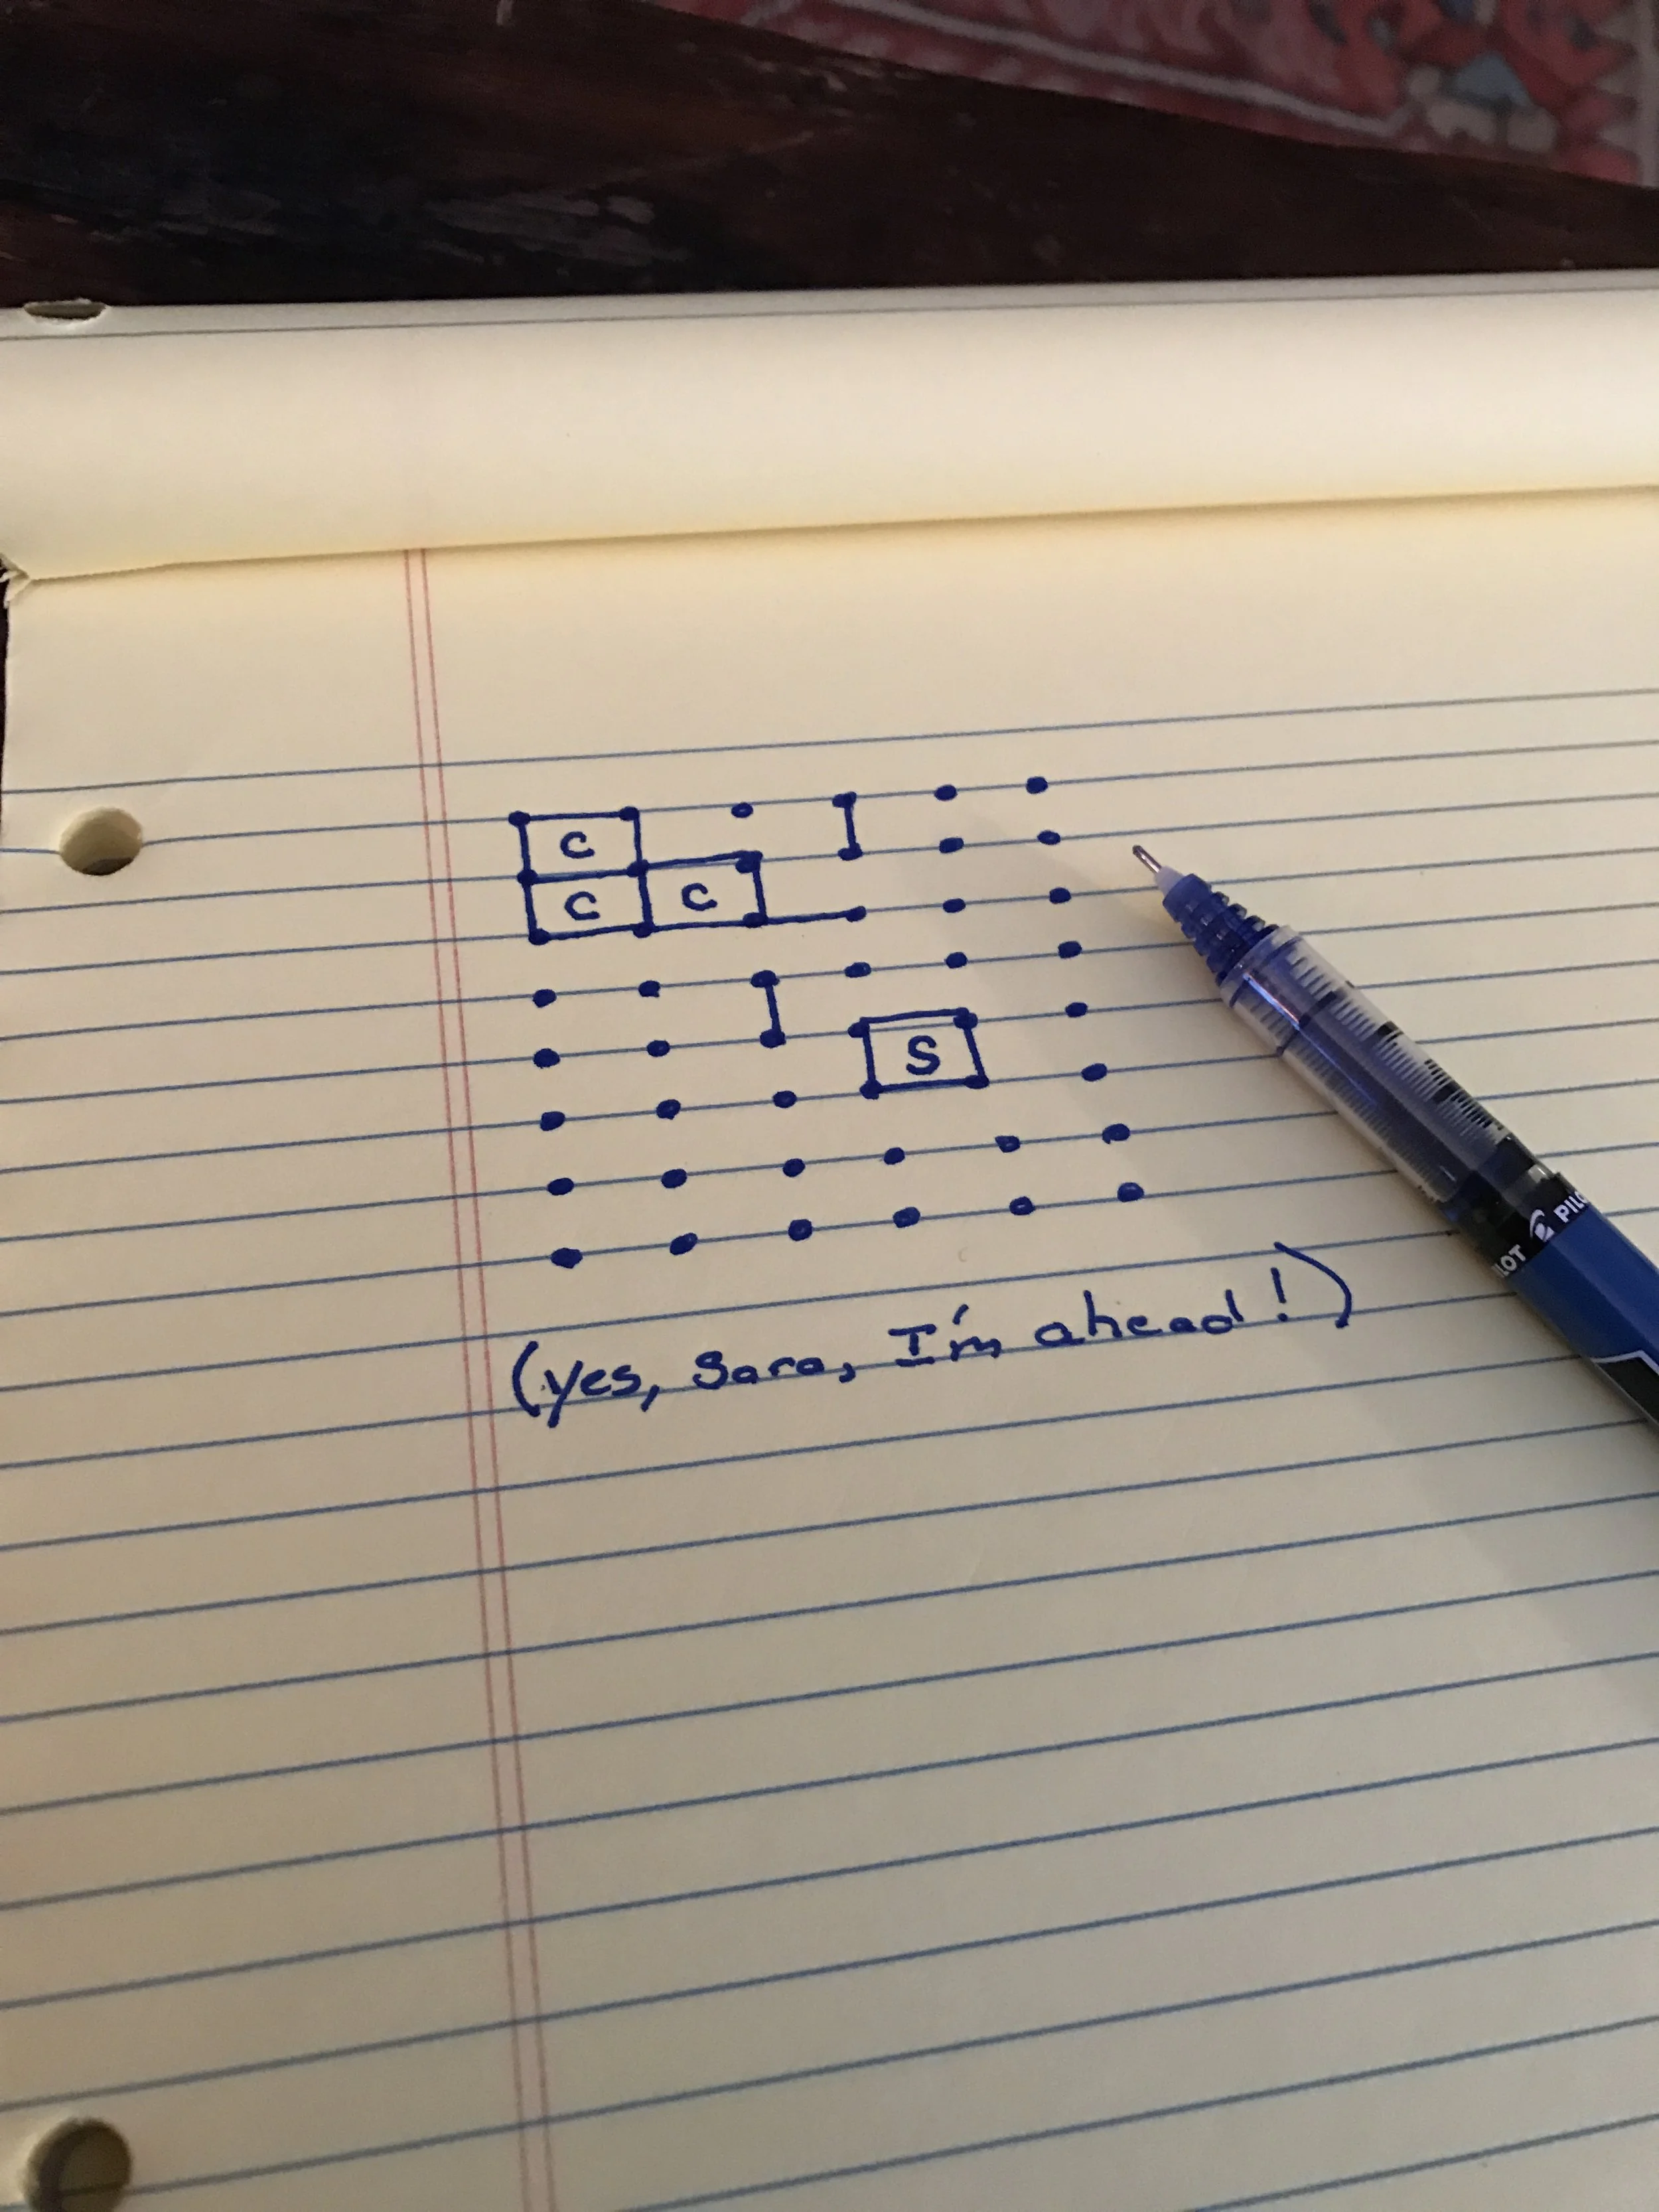 C
C C
S
(yes, Sara, I'm ahead!)
PILOT PILO